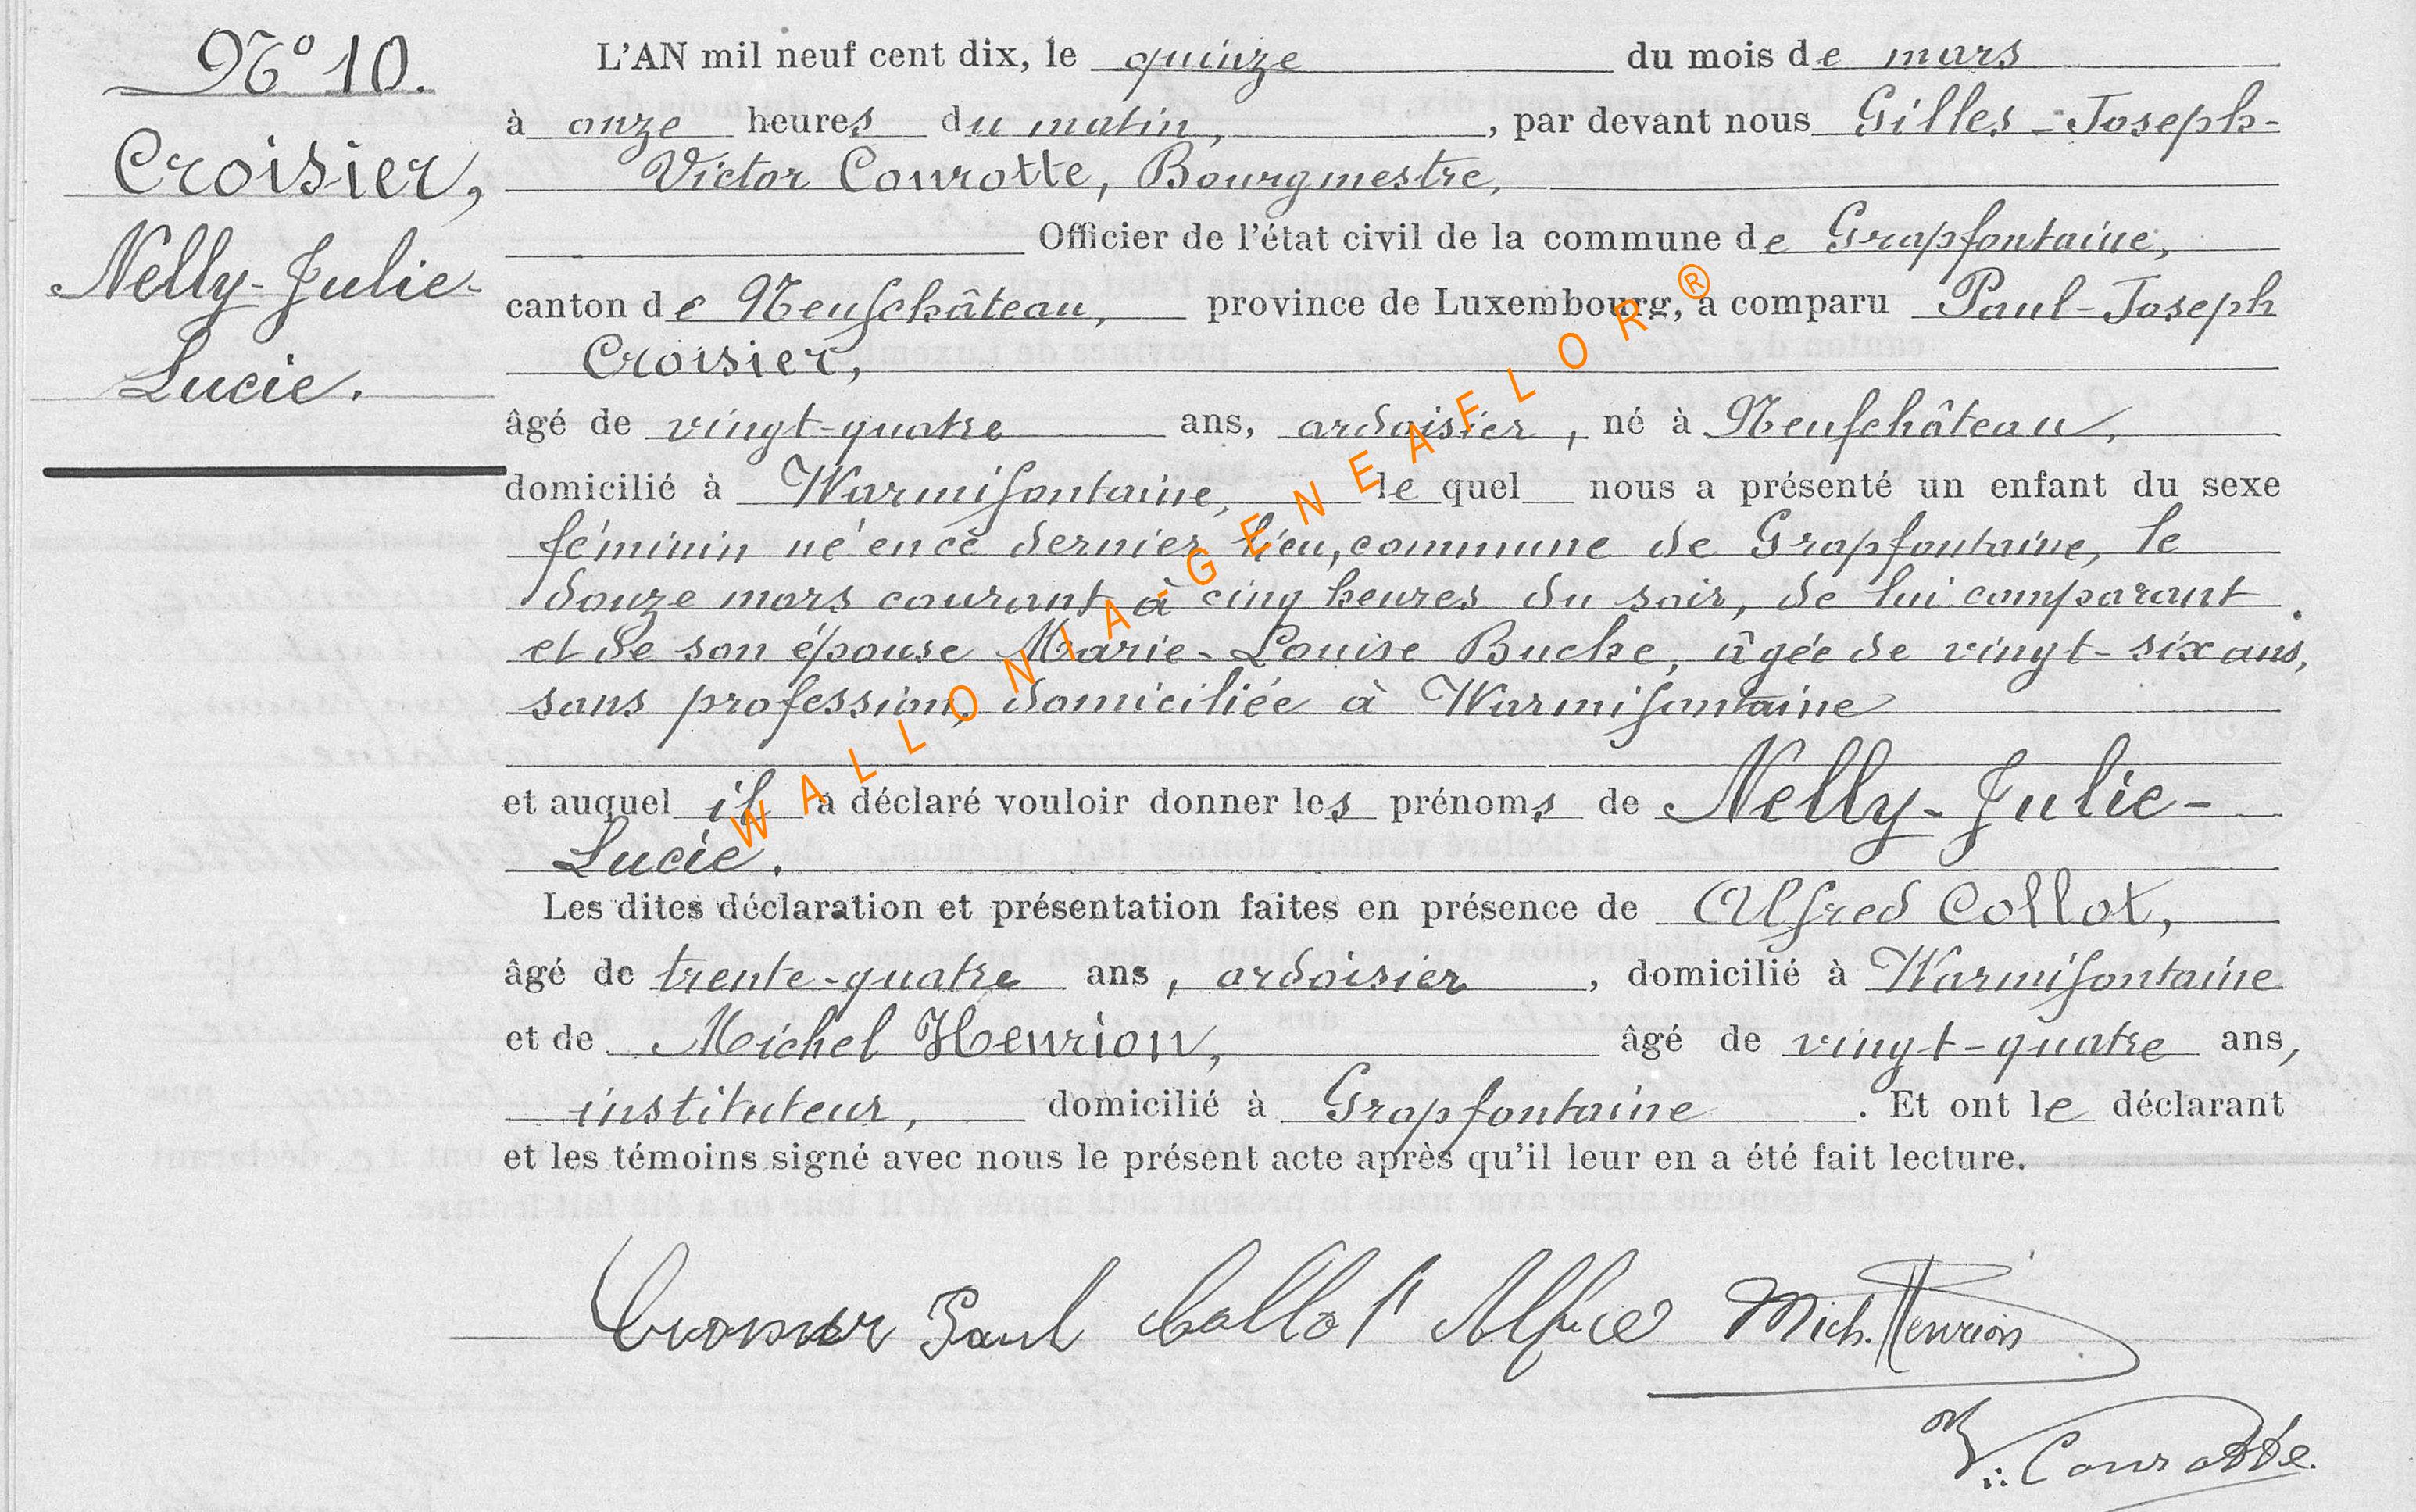 N° 10.
Croisier,
Nelly-Julie-
Lucie.
L'AN mil neuf cent dix, le quinze du mois de mars
à onze heures du matin, , par devant nous Gilles-Joseph-
Victor Courotte, Bourgmestre,
Officier de l'état civil de la commune de Grapfontaine,
canton de Neufchâteau, province de Luxembourg, a comparu Paul-Joseph
Croisier,
âgé de vingt-quatre ans, ardoisier, né à Neufchâteau,
domicilié à Warmifontaine, le quel nous a présenté un enfant du sexe
féminin né en ce dernier lieu, commune de Grapfontaine, le
douze mars courant à cinq heures du soir, de lui comparant
et de son épouse Marie-Louise Buche, âgée de vingt-six ans,
sans profession, domiciliée à Warmifontaine
et auquel il a déclaré vouloir donner les prénoms de Nelly-Julie-
Lucie.
Les dites déclaration et présentation faites en présence de Alfred Collot,
âgé de trente-quatre ans, ardoisier , domicilié à Warmifontaine
et de Michel Henrion, âgé de vingt-quatre ans,
instituteur, domicilié à Grapfontaine . Et ont le déclarant
et les témoins signé avec nous le présent acte après qu'il leur en a été fait lecture.
Paul Collot Mich. Henrion
Courotte.
WALLONIA-GENEAFLOR®